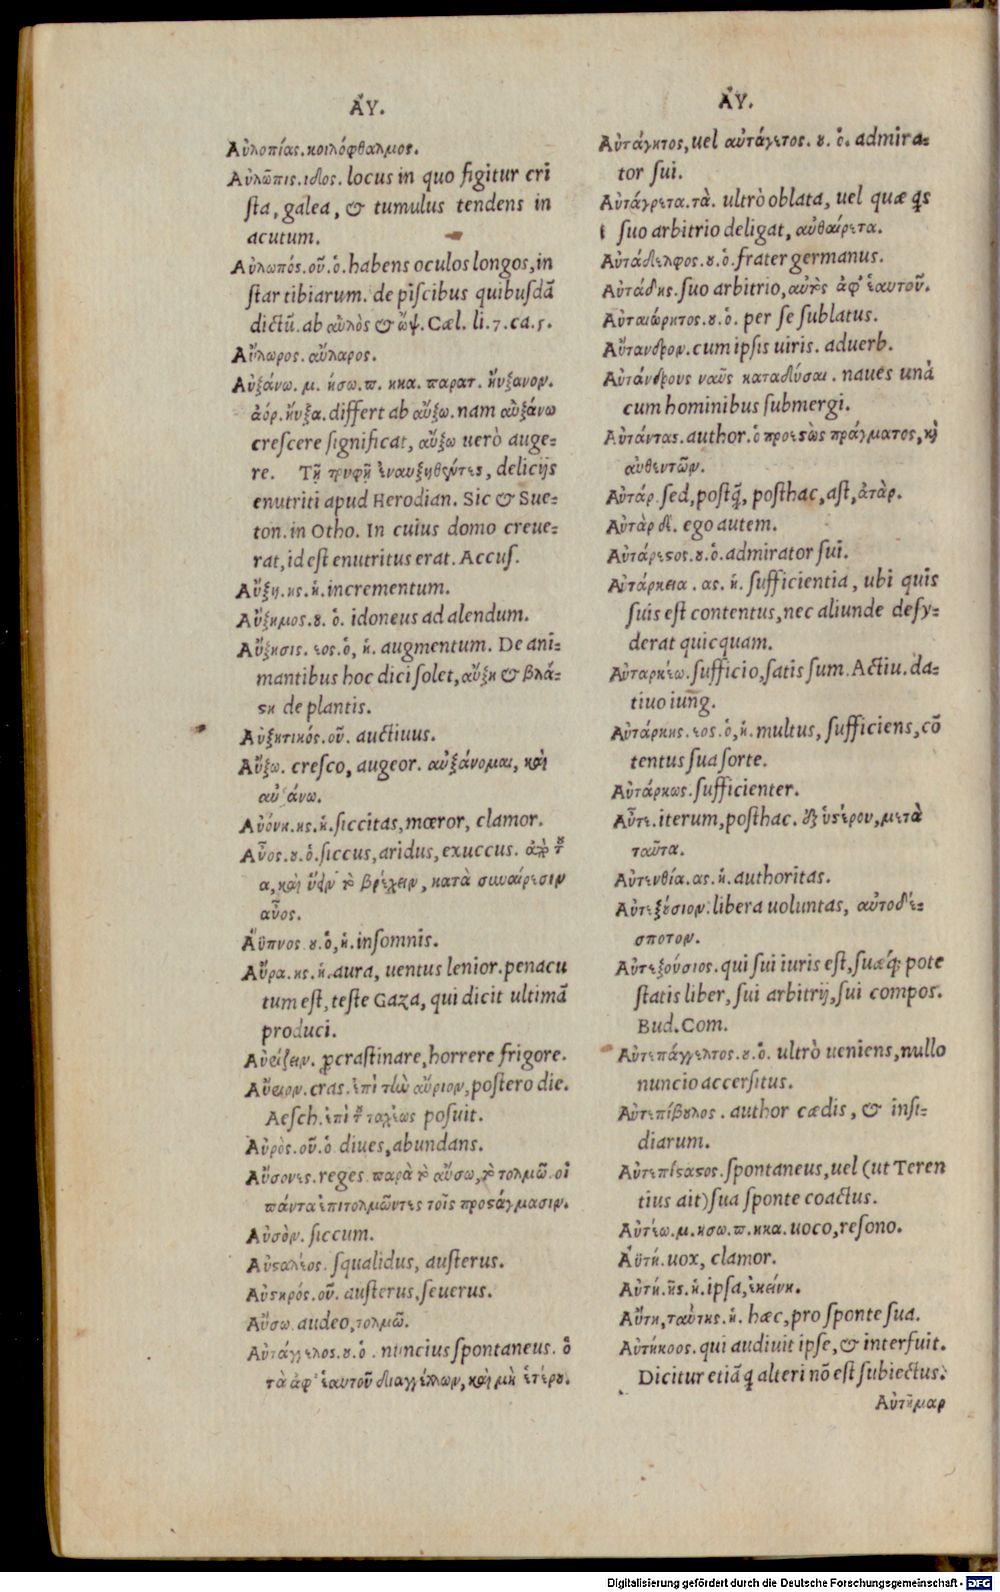 ἈΥ.
Αὐλοπίας. κοιλόφθαλμος.
Αὐλῶπις. ιδος. locus in quo figitur cri
sta, galea, & tumulus tendens in
acutum.
Αὐλωπός. οῦ. ὁ. habens oculos longos, in
star tibiarum. de piscibus quibusdã
dictũ. ab αὐλὸς & ὤψ. Cæl. li. 7. ca. 5.
Αὔλωρος. αὔλαρος.
Αὐξάνω. μ. ήσω. π. ηκα. παρατ. ηὔξανον.
ἀόρ. ηὔξα. differt ab αὔξω. nam αὐξάνω
crescere significat, αὔξω uerò auge=
re. Τῇ τρυφῇ ἐναυξηθέντες, delicijs
enutriti apud Herodian. Sic & Sue=
ton. in Otho. In cuius domo creue=
rat, id est enutritus erat. Accus.
Αὔξη. ης. ἡ. incrementum.
Αὔξιμος. ου. ὁ. idoneus ad alendum.
Αὔξησις. εος. ὁ, ἡ. augmentum. De ani=
mantibus hoc dici solet, αὔξη & βλά=
στη de plantis.
Αὐξητικός. οῦ. auctiuus.
Αὔξω. cresco, augeor. αὐξάνομαι, καὶ
αὐξάνω.
Αὐόνη. ης. ἡ. siccitas, mœror, clamor.
Αὖος. ου. ὁ. siccus, aridus, exuccus. παρὰ τοῦ
α, καὶ ὕειν τὸ βρέχειν, κατὰ συναίρεσιν
αὖος.
Ἄϋπνος ου. ὁ, ἡ. insomnis.
Αὔρα. ης. ἡ. aura, uentus lenior. penacu
tum est, teste Gaza, qui dicit ultimã
produci.
Αὐρίζειν. ꝓcrastinare, horrere frigore.
Αὔριον. cras. ἐπὶ τὴν αὔριον, postero die.
Aesch. ἐπὶ τοῦ ταχέως posuit.
Αὐρὸς. οῦ. ὁ diues, abundans.
Αὔσονες. reges παρὰ τὸ αὔσω, τὸ τολμῶ. οἱ
πάντα ἐπιτολμῶντες τοῖς προστάγμασιν.
Αὐσὸν. siccum.
Αὐσταλέος. squalidus, austerus.
Αὐστηρός. οῦ. austerus, seuerus.
Αὔσω. audeo, τολμῶ.
Αὐτάγγελος. ου. ὁ. nuncius spontaneus. ὁ
τὰ ἀφ' ἑαυτοῦ διαγγέλλων, καὶ μὴ ἑτέρου.
ἈΥ.
Αὐτάγητος, uel αὐτάγετος. ου. ὁ. admira=
tor sui.
Αὐτάγρετα. τὰ. ultrò oblata, uel quæ qs
suo arbitrio deligat, αὐθαίρετα.
Αὐτάδελφος. ου. ὁ. frater germanus.
Αὐτάδης. suo arbitrio, αὐτὸς ἀφ' ἑαυτοῦ.
Αὐταιώρητος. ου. ὁ. per se sublatus.
Αὔτανδρον. cum ipsis uiris. aduerb.
Αὐτάνδρους ναῦς καταδύσαι. naues unà
cum hominibus submergi.
Αὐτάντας. author. ὁ προεστὼς πράγματος, καὶ
αὐθεντῶν.
Αὐτάρ. sed, postq̃, posthac, ast, ἀτὰρ.
Αὐτὰρ δὲ. ego autem.
Αὐτάρεστος. ου. ὁ. admirator sui.
Αὐτάρκεια. ας. ἡ. sufficientia, ubi quis
suis est contentus, nec aliunde desy=
derat quicquam.
Αὐταρκέω. sufficio, satis sum. Actiu. da=
tiuo iung.
Αὐτάρκης. εος. ὁ, ἡ. multus, sufficiens, cõ
tentus sua sorte.
Αὐτάρκως. sufficienter.
Αὖτε. iterum, posthac. ἐξ ὑστέρου, μετὰ
ταῦτα.
Αὐτενθία. ας. ἡ. authoritas.
Αὐτεξούσιον. libera uoluntas, αὐτοδέ=
σποτον.
Αὐτεξούσιος. qui sui iuris est, suæq́; pote
statis liber, sui arbitrij, sui compos.
Bud. Com.
Αὐτεπάγγελτος. ου. ὁ. ultrò ueniens, nullo
nuncio accersitus.
Αὐτεπίβουλος. author cædis, & insi=
diarum.
Αὐτεπίστατος. spontaneus, uel (ut Teren
tius ait) sua sponte coactus.
Αὐτέω. μ. ησω. π. ηκα. uoco, resono.
Ἀϋτή. uox, clamor.
Αὐτή. ῆς. ἡ. ipsa, ἐκείνη.
Αὕτη, ταύτης. ἡ. hæc, pro sponte sua.
Αὐτήκοος. qui audiuit ipse, & interfuit.
Dicitur etiã q alteri nõ est subiectus.
Αὐτῆμαρ
Digitalisierung gefördert durch die Deutsche Forschungsgemeinschaft - DFG